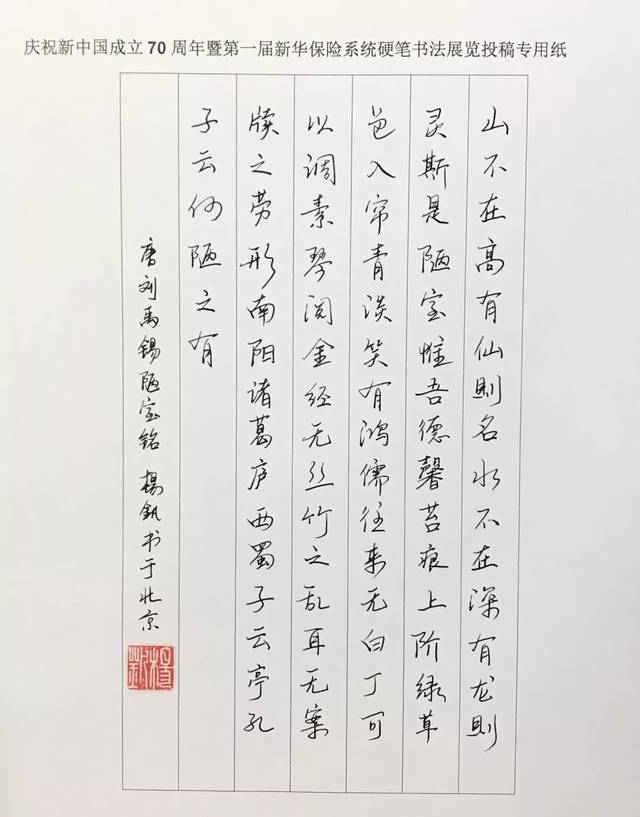 庆祝新中国成立70周年暨第一届新华保险系统硬笔书法展览投稿专用纸
山不在高有仙則名水不在深有龙則
灵斯是陋室惟吾德馨苔痕上阶绿草
色入帘青谈笑有鸿儒往来无白丁可
以调素琴阅金经无丝竹之乱耳无案
牍之劳形南阳诸葛庐西蜀子云亭孔
子云何陋之有
唐刘禹锡陋室铭 楊书于北京